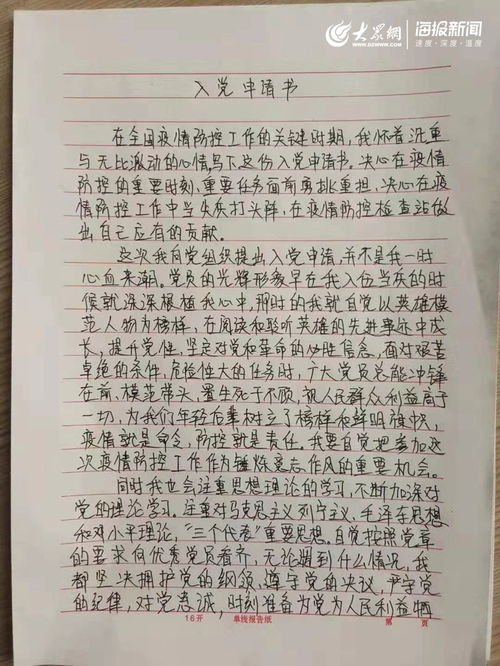 大众网
WWW.DZWWW.COM
海报新闻
速度·深度·温度
入党申请书
在全国疫情防控工作的关键时期,我怀着沉重
与无比激动的心情写下这份入党申请书。决心在疫情
防控的重要时刻、重要任务面前勇挑重担,决心在疫
情防控工作中当先锋打头阵,在疫情防控检查站做
出自己应有的贡献。
这次我向党组织提出入党申请,并不是我一时
心血来潮。党员的光辉形象早在我入伍当兵的时
候就深深根植我心中,那时的我就自觉以英雄模
范人物为榜样,在阅读和聆听英雄的先进事迹中成
长,提升党性,坚定对党和革命的必胜信念,面对艰苦
卓绝的条件,危险性大的任务时,广大党员总能冲锋
在前、模范带头、置生死于不顾,视人民群众利益高于
一切,为我们年轻后辈树立了榜样和鲜明旗帜,
疫情就是命令,防控就是责任。我要自觉把参加这
次疫情防控工作作为锤炼意志作风的重要机会。
同时我也会注重思想理论的学习,不断加深对
党的理论学习。注重对马克思主义列宁主义、毛泽东思想
和邓小平理论,“三个代表”重要思想。自觉按照党章
的要求向优秀党员看齐,无论遇到什么情况,我
都坚决拥护党的纲领,遵守党的决议,严守党
的纪律,对党忠诚,时刻准备为党为人民利益牺
16开 单线报告纸 第 页